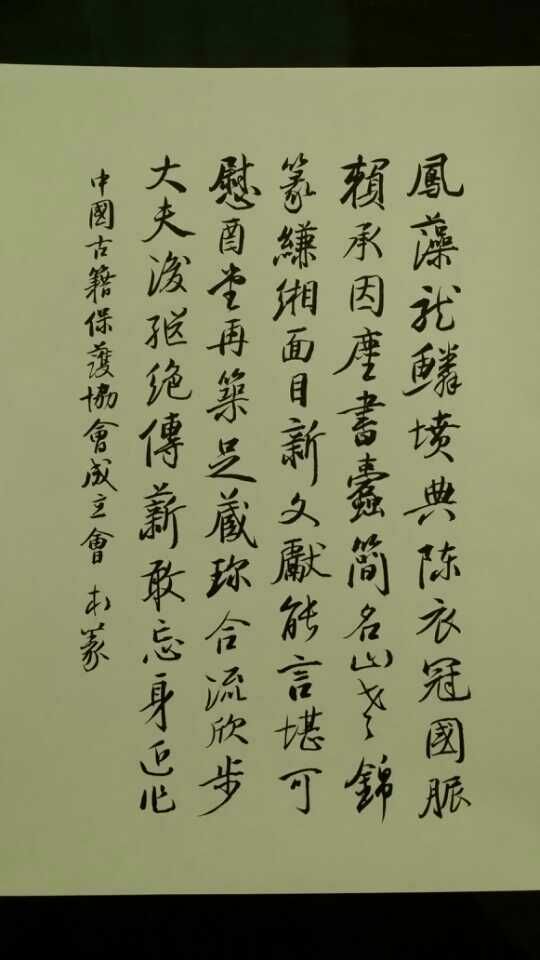 鳳藻龍鱗墳典陳衣冠國脈
賴承因塵書蠹簡名山老錦
篆縑緗面目新文獻能言堪可
慰酉堂再築足藏珍合流欣步
大夫後繼絕傳薪敢忘身近作
中國古籍保護協會成立會 篆